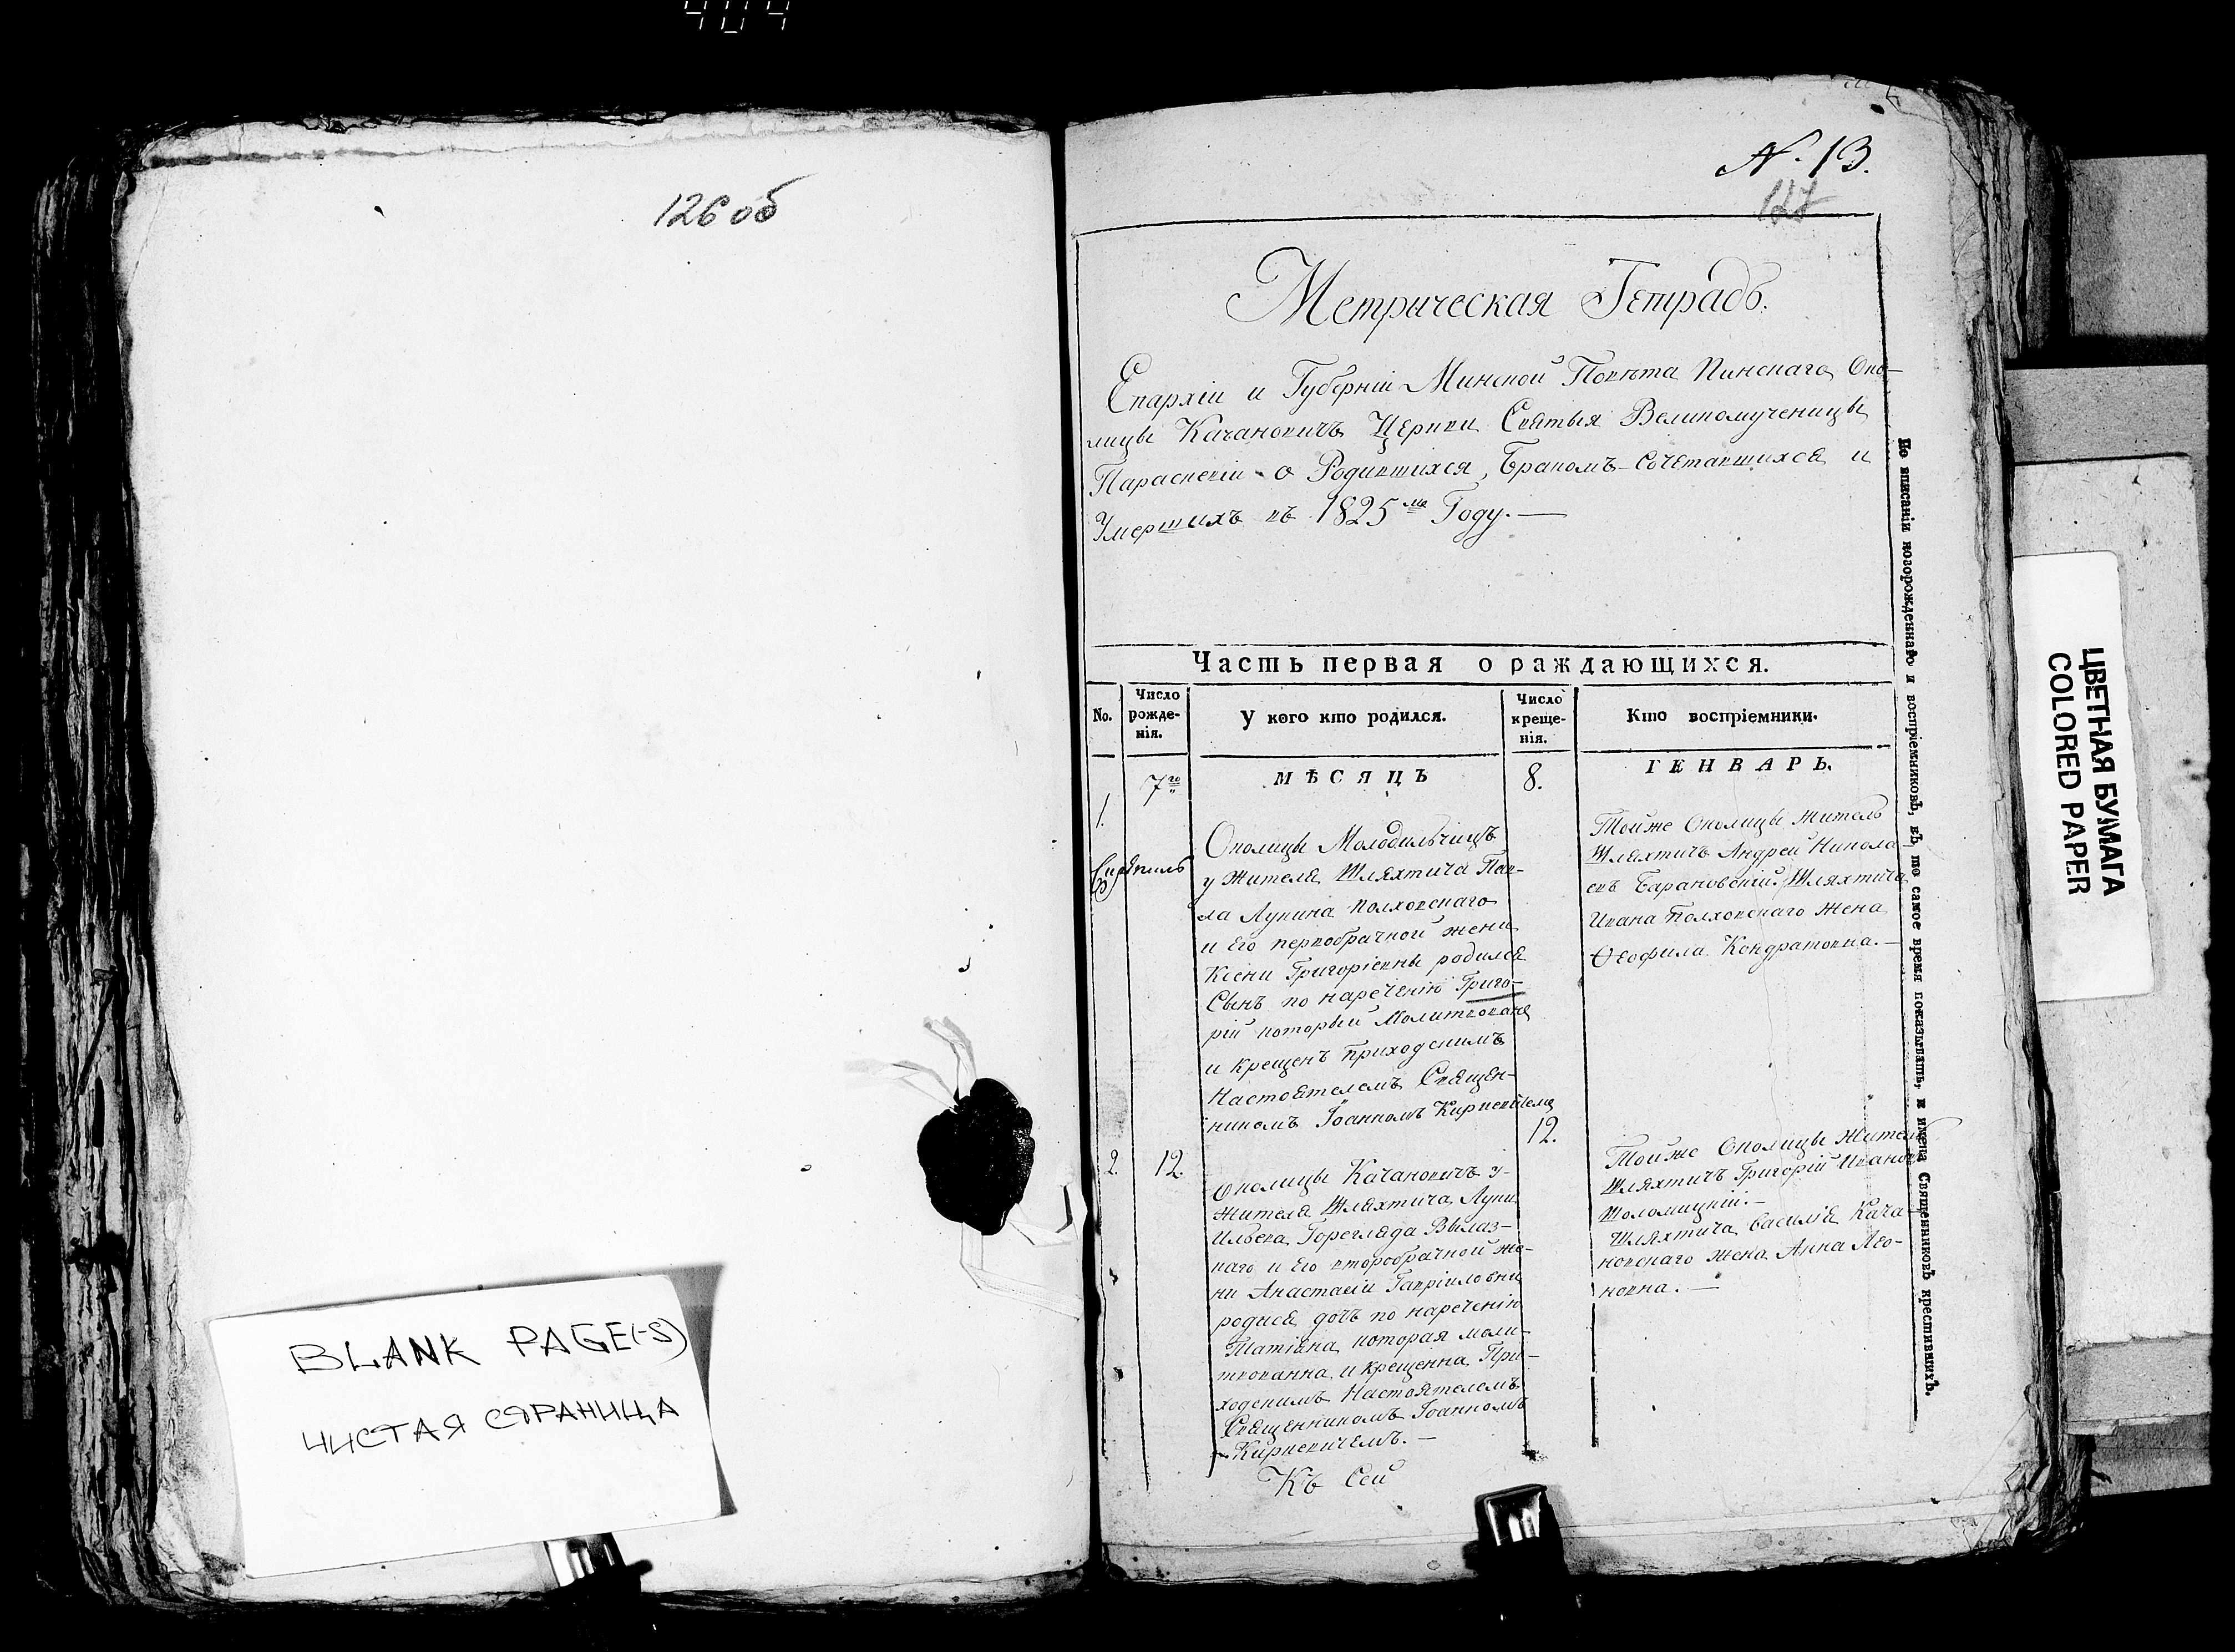 404
126 об
BLANK PAGE(-S)
ЧИСТАЯ СТРАНИЦА
N. 13.
127
Метрическая Тетрадь.
Епархіи и Губерніи Минской Повѣта Пинскаго Око-
лицы Качановичъ Церкви Святыя Великомученицы
Параскевіи о Родившихся, Бракомъ-Сочетавшихся и
Умершихъ въ 1825 мъ Году.—
Часть первая о раждающихся.
No.
Число рожде-нія.
У кого кто родился.
Число креще-нія.
Кто воспріемники.
МѢСЯЦЪ
ГЕНВАРЬ.
1.
7го
8.
Околицы Молодильчицъ
у Жителя Шляхтича Пав-
ла Лукина Полховскаго
и Его первобрачной жены
Ксени Григоріевны родился
Сынъ по нареченію Григо-
рій который Молитвованъ
и крещенъ Приходскимъ
Настоятелемъ Священ-
никомъ Іоанномъ Киркевичемъ
Тойже Околицы Житель
Шляхтичъ Андрей Никола
евъ Барановскій. Шляхтича
Ивана Полховскаго Жена
Ѳеофила Кондратовна.—
2.
12.
12.
Околицы Качановичъ у-
Жителя Шляхтича Луки
Ильева Гореглада Вылаз-
каго и Его второбрачной же-
ни Анастасіи Гавріиловни
родися дочь по нареченію
Татіана, которая моли-
твованна и крещенна При-
ходскимъ Настоятелемъ
Священникомъ Іоанномъ
Киркевичемъ.—
Тойже Околицы Житель
Шляхтичъ Григорій Ивановъ
Шоломицкій.—
Шляхтича Василія Кача
новскаго жена Анна Лео-
новна.—
Къ Сей
По вписаніи новорожденнаго и воспріемниковъ, въ то самое время показывать, и имена Священниковъ крестившихъ.
ЦВЕТНАЯ БУМАГА
COLORED PAPER